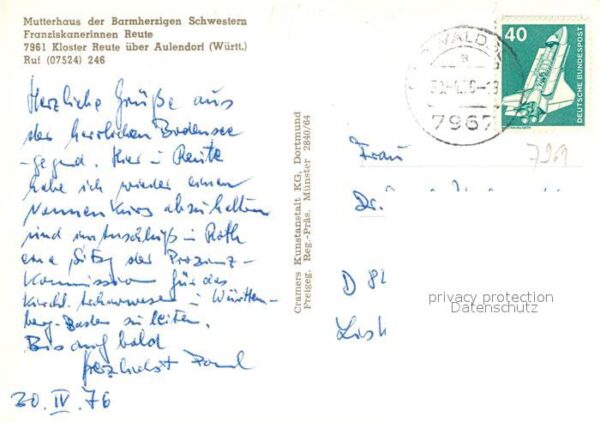 Mutterhaus der Barmherzigen Schwestern
Franziskanerinnen Reute
7961 Kloster Reute über Aulendorf (Württ.)
Ruf (07524) 246
Herzliche Grüße aus
der herrlichen Bodensee-
gegend. Hier in Reute
habe ich wieder einen
Nonnenkurs abzuhalten
und im Anschluß in Roth
eine Sitzg der
Kommission für das
Kirchl. in Württem-
berg-Baden zu leiten.
Bis auf bald
herzlichst
20. IV. 76
Cramers Kunstanstalt KG, Dortmund
Freigeg. Reg.-Präs. Münster 2840/64
WALDSEE
a
7967
40
DEUTSCHE BUNDESPOST
7961
Frau
Dr.
D 82
privacy protection
Datenschutz